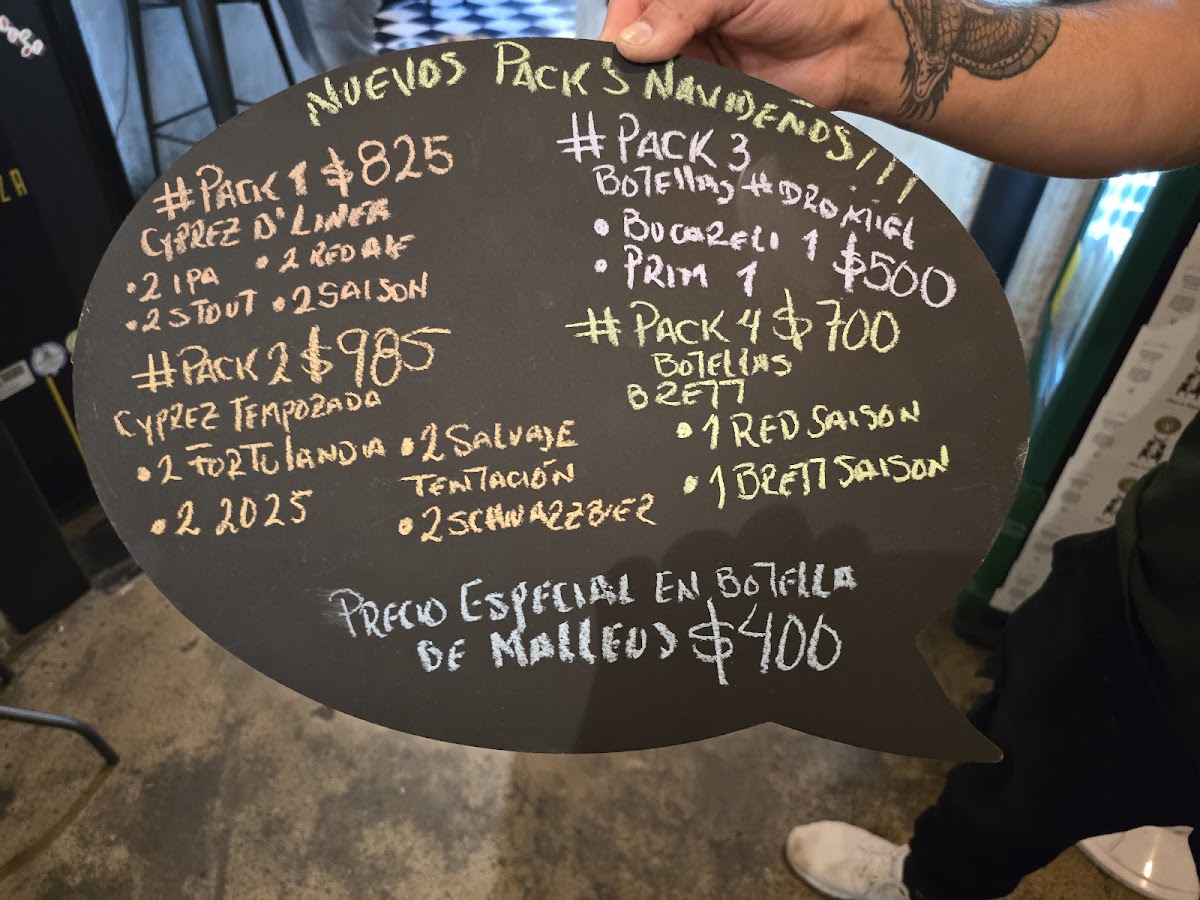 NUEVOS PACK'S NAVIDEÑOS!!!
#PACK 1 $825
CYPREZ D' LINEA
•2 IPA •2 RED ALE
•2 STOUT •2 SAISON
#PACK 2 $985
CYPREZ TEMPORADA
•2 FORTULANDIA •2 SALVAJE
TENTACIÓN
•2 2025
•2 SCHWARZBIER
#PACK 3
BOTELLAS HIDROMIEL
• BUCARELI 1
• PRIM 1 $500
#PACK 4 $700
BOTELLAS
BRETT
•1 RED SAISON
•1 BRETT SAISON
PRECIO ESPECIAL EN BOTELLA
DE MALLEUS $400